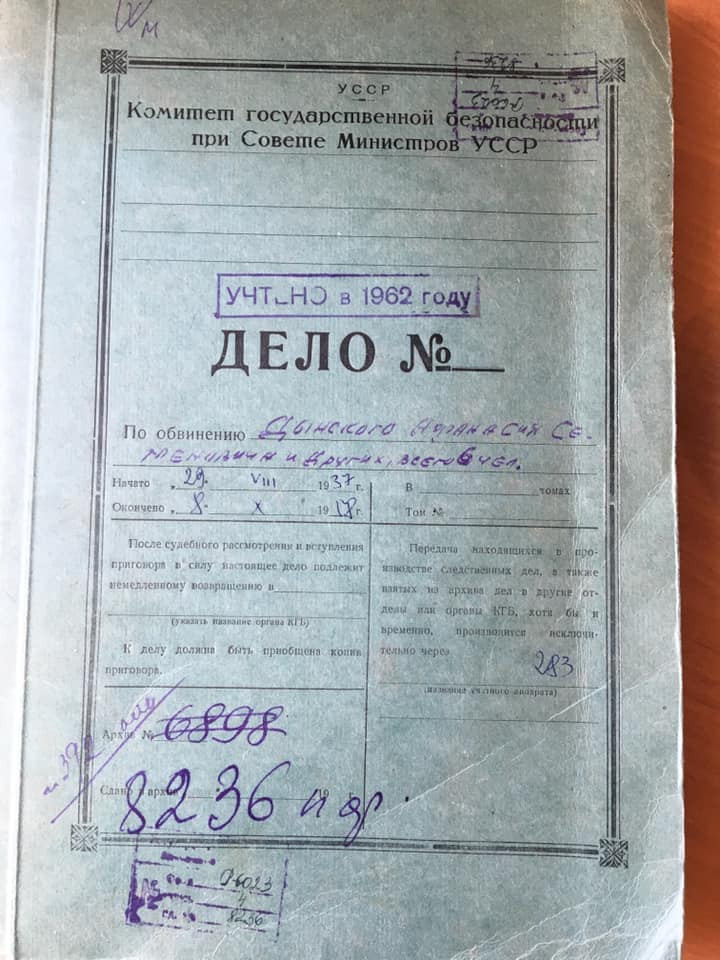 УССР
Комитет государственной безопасности
при Совете Министров УССР
УЧТЕНО в 1962 году
ДЕЛО №
По обвинению Дынского Афанасия Се-
меновича и других, всего 6 чел.
Начато „29. VIII 1937 г.
Окончено „8. X 19 г.
В томах
Том №
После судебного рассмотрения и вступления
приговора в силу настоящее дело подлежит
немедленному возвращению в
(указать название органа КГБ)
К делу должна быть приобщена копия
приговора.
Передача находящихся в про-
изводстве следственных дел, а также
взятых из архива дел в другие от-
делы или органы КГБ, хотя бы и
временно, производится исключи-
тельно через
283
(название учетного аппарата)
Архив № 6898
Сдано в архив 19
8236
Р6023
4
8236